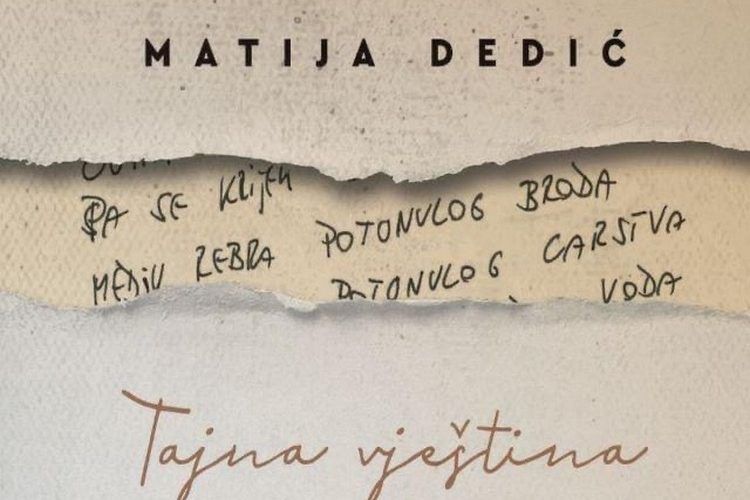 MATIJA DEDIĆ
PA SE KRIJEM
MEĐU REBRA POTONULOG BRODA
POTONULOG CARSTVA
VODA
Tajna vještina